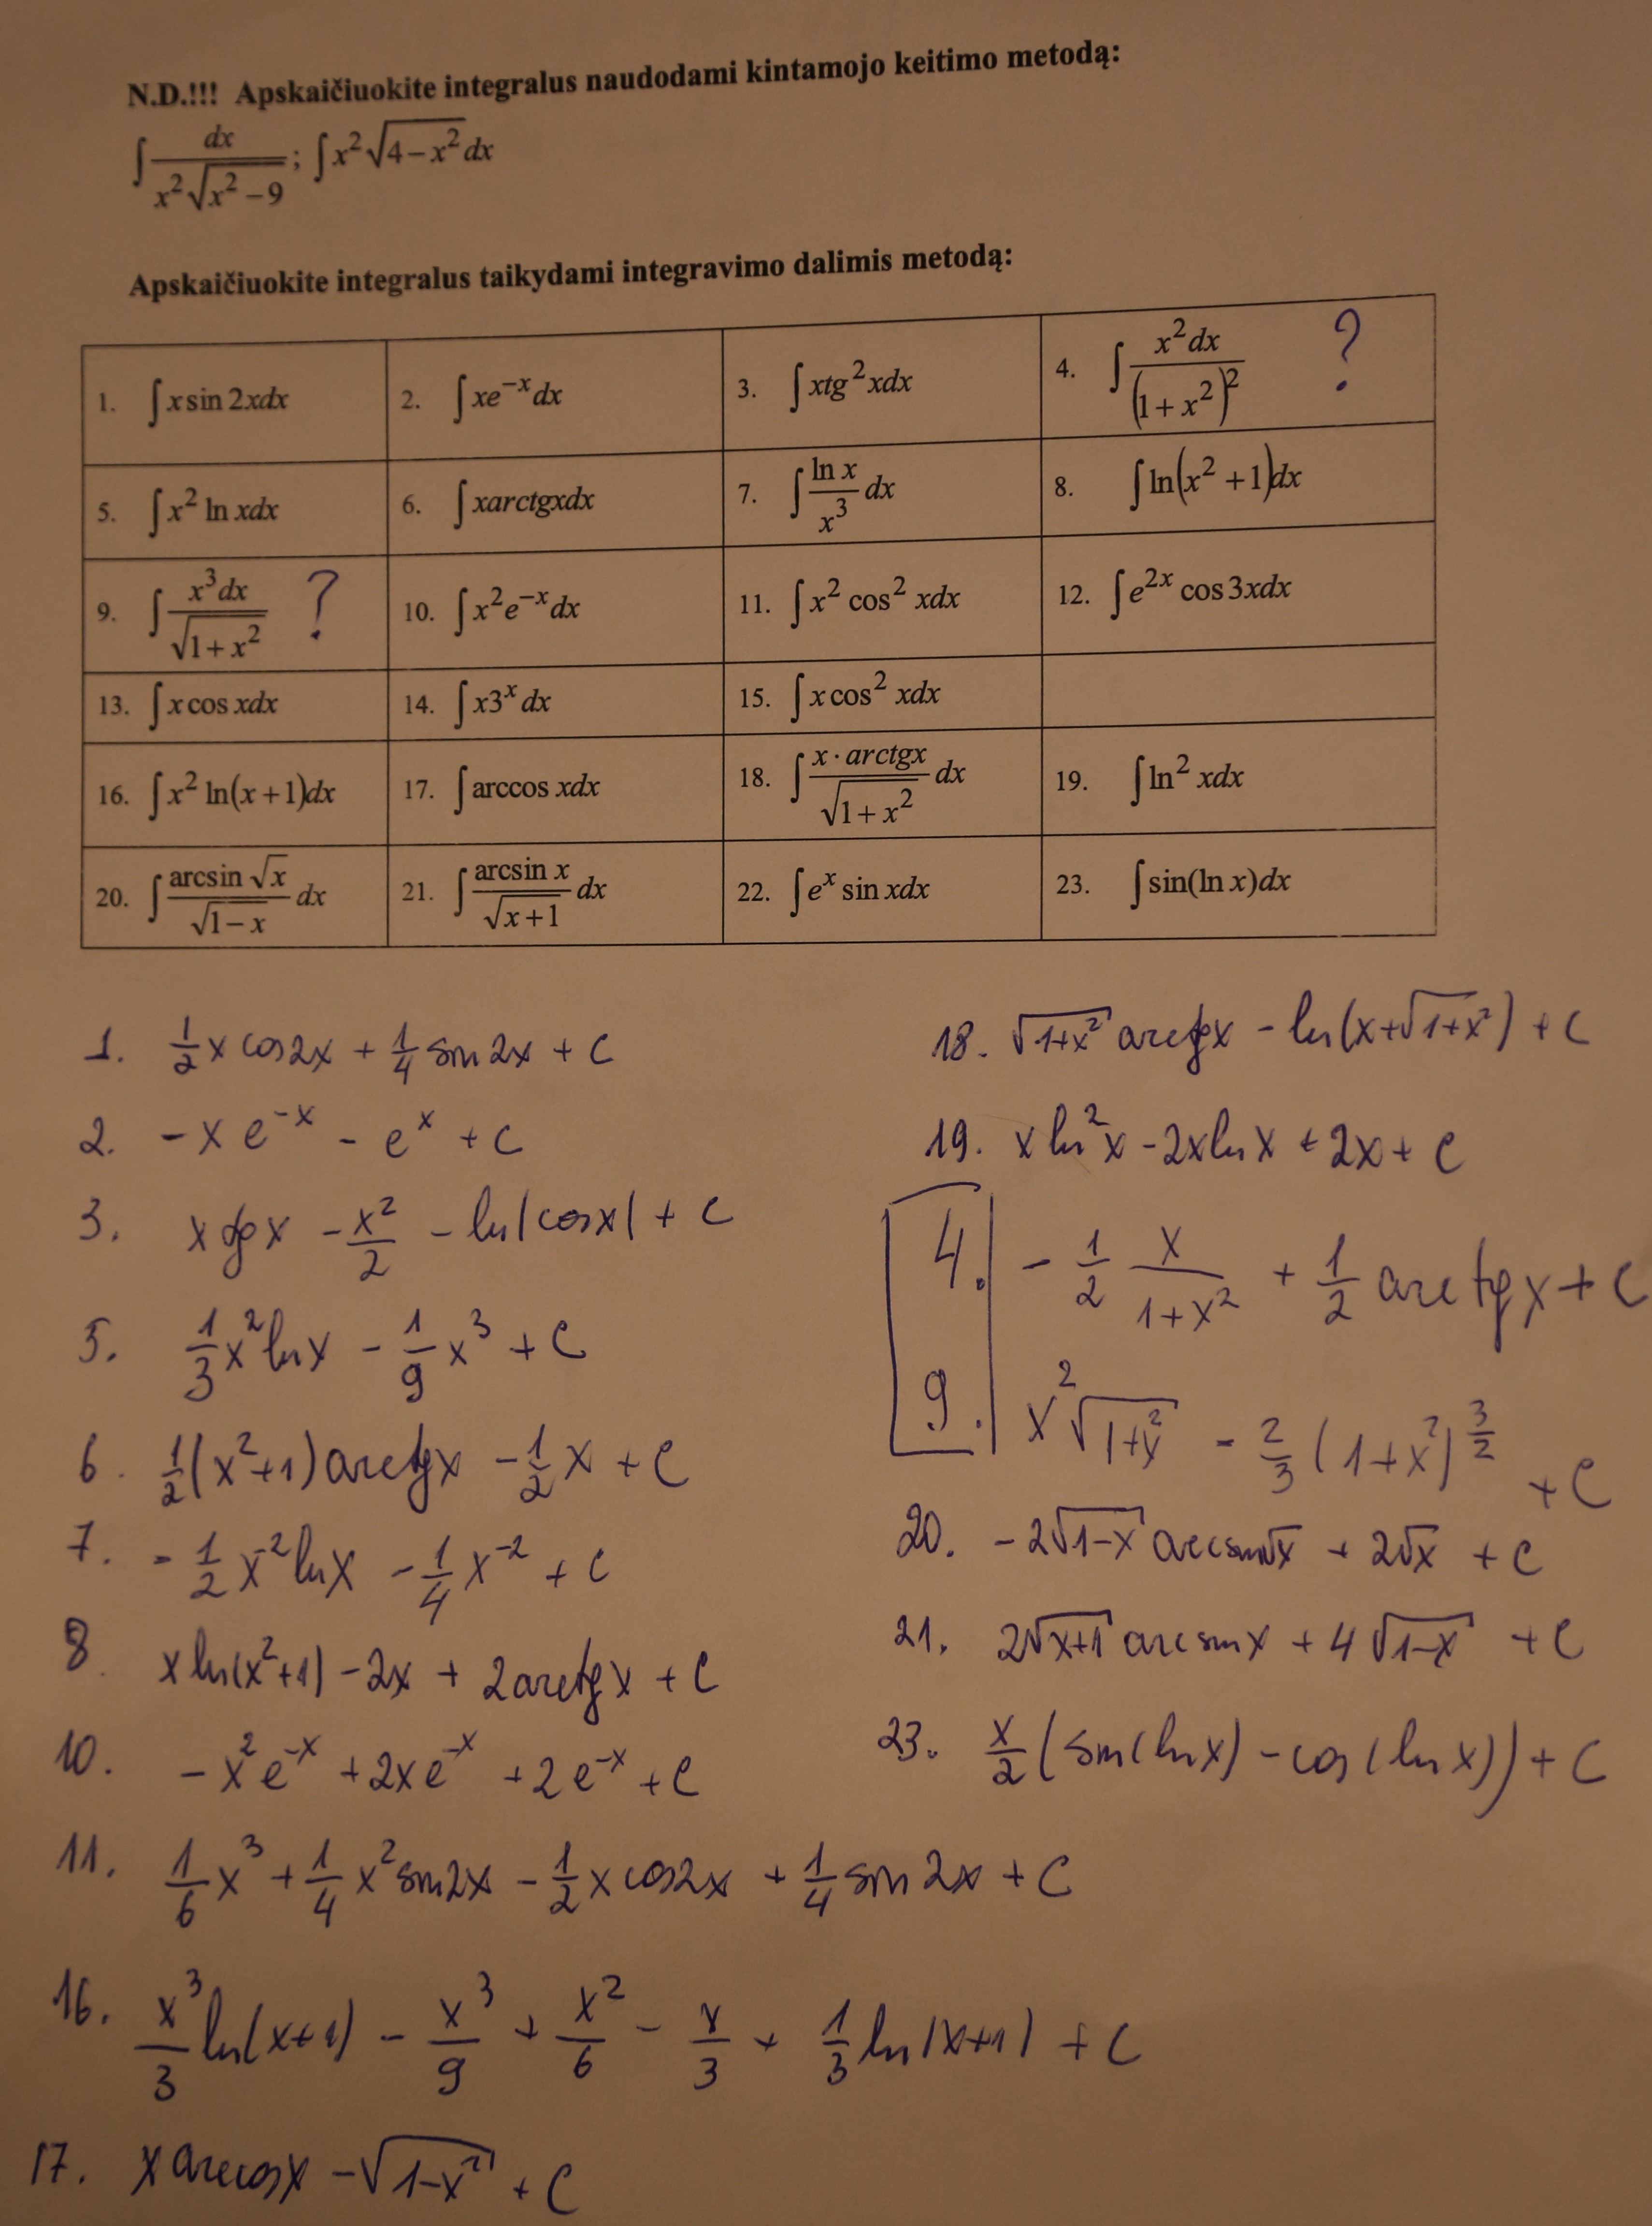 N.D.!!! Apskaičiuokite integralus naudodami kintamojo keitimo metodą:
∫ dx / (x²√(x² − 9)); ∫x²√(4 − x²) dx
Apskaičiuokite integralus taikydami integravimo dalimis metodą:
1. ∫x sin 2xdx
2. ∫xe⁻ˣdx
3. ∫xtg²xdx
4. ∫ x²dx / (1 + x²)² ?
5. ∫x² ln xdx
6. ∫xarctgxdx
7. ∫ ln x / x³ dx
8. ∫ln(x² + 1)dx
9. ∫ x³dx / √(1 + x²) ?
10. ∫x²e⁻ˣdx
11. ∫x² cos² xdx
12. ∫e²ˣ cos 3xdx
13. ∫x cos xdx
14. ∫x3ˣdx
15. ∫x cos² xdx
16. ∫x² ln(x + 1)dx
17. ∫arccos xdx
18. ∫ x · arctgx / √(1 + x²) dx
19. ∫ln² xdx
20. ∫ arcsin √x / √(1 − x) dx
21. ∫ arcsin x / √(x + 1) dx
22. ∫eˣ sin xdx
23. ∫sin(ln x)dx
1. ½x cos2x + ¼ sin 2x + C
2. −x e⁻ˣ − eˣ + C
3. x tgx − x²/2 − ln|cosx| + C
5. ⅓x² lnx − 1/9 x³ + C
6. ½(x²+1) arctgx − ½x + C
7. −½ x⁻² lnx − ¼ x⁻² + C
8. x ln(x²+1) − 2x + 2arctgx + C
10. −x²e⁻ˣ + 2xe⁻ˣ + 2e⁻ˣ + C
11. 1/6 x³ + ¼ x² sin2x − ½ x cos2x + ¼ sin 2x + C
16. x³/3 ln(x+1) − x³/9 + x²/6 − x/3 + ⅓ ln|x+1| + C
17. x arccosx − √(1−x²) + C
18. √(1+x²) arctgx − ln(x+√(1+x²)) + C
19. x ln²x − 2x lnx + 2x + C
4. −½ x/(1+x²) + ½ arctgx + C
9. x²√(1+x²) − ⅔(1+x²)^(3/2) + C
20. −2√(1−x) arcsin√x + 2√x + C
21. 2√(x+1) arcsinx + 4√(1−x) + C
23. x/2 (sin(lnx) − cos(lnx)) + C